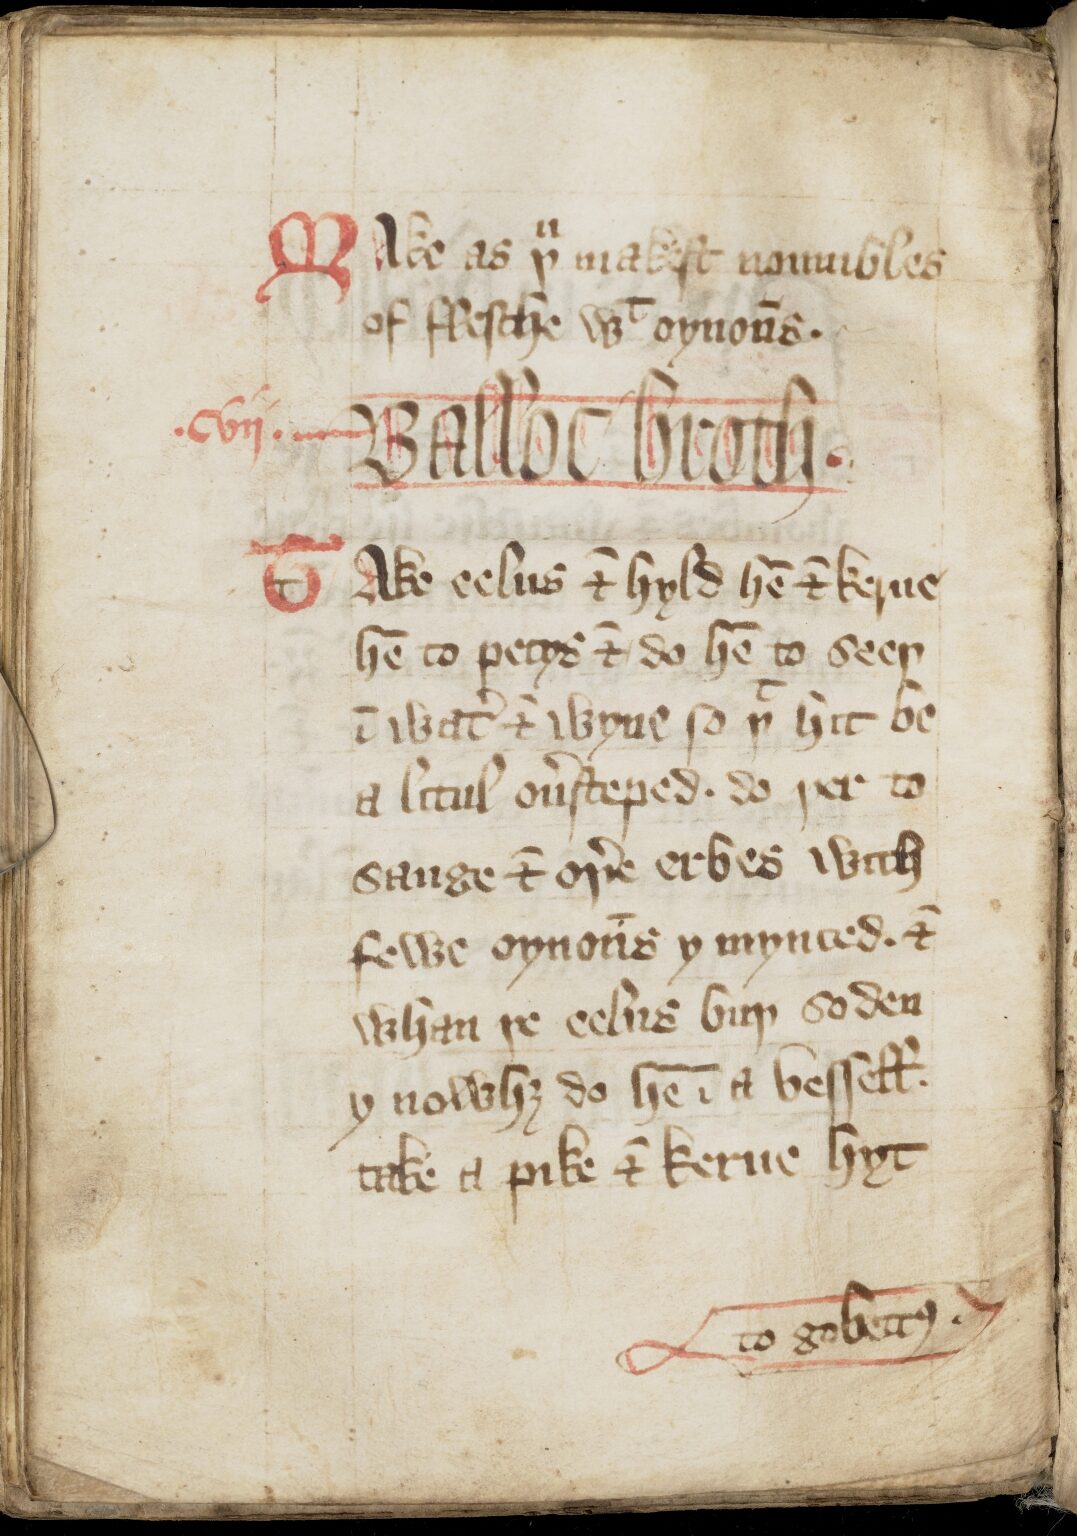 MAke as þͧ makest nomnibles
of fflesche wͭ oynoūs.
.cvij. Balloc broth.
TAke eelus & hyld hē & kerue
hē to pecys & do hē to seeþ
ī wat̓ & wyne so þͭ hit be
a litul ou̓steped. do þer to
sauge & oþ̓e erbes with
fewe oynoūs y mynced. &
whan þe eelus buþ soden
y nowhȝ do hē ī a vessell.
take a pike & kerue hyt
to gobettꝰ.